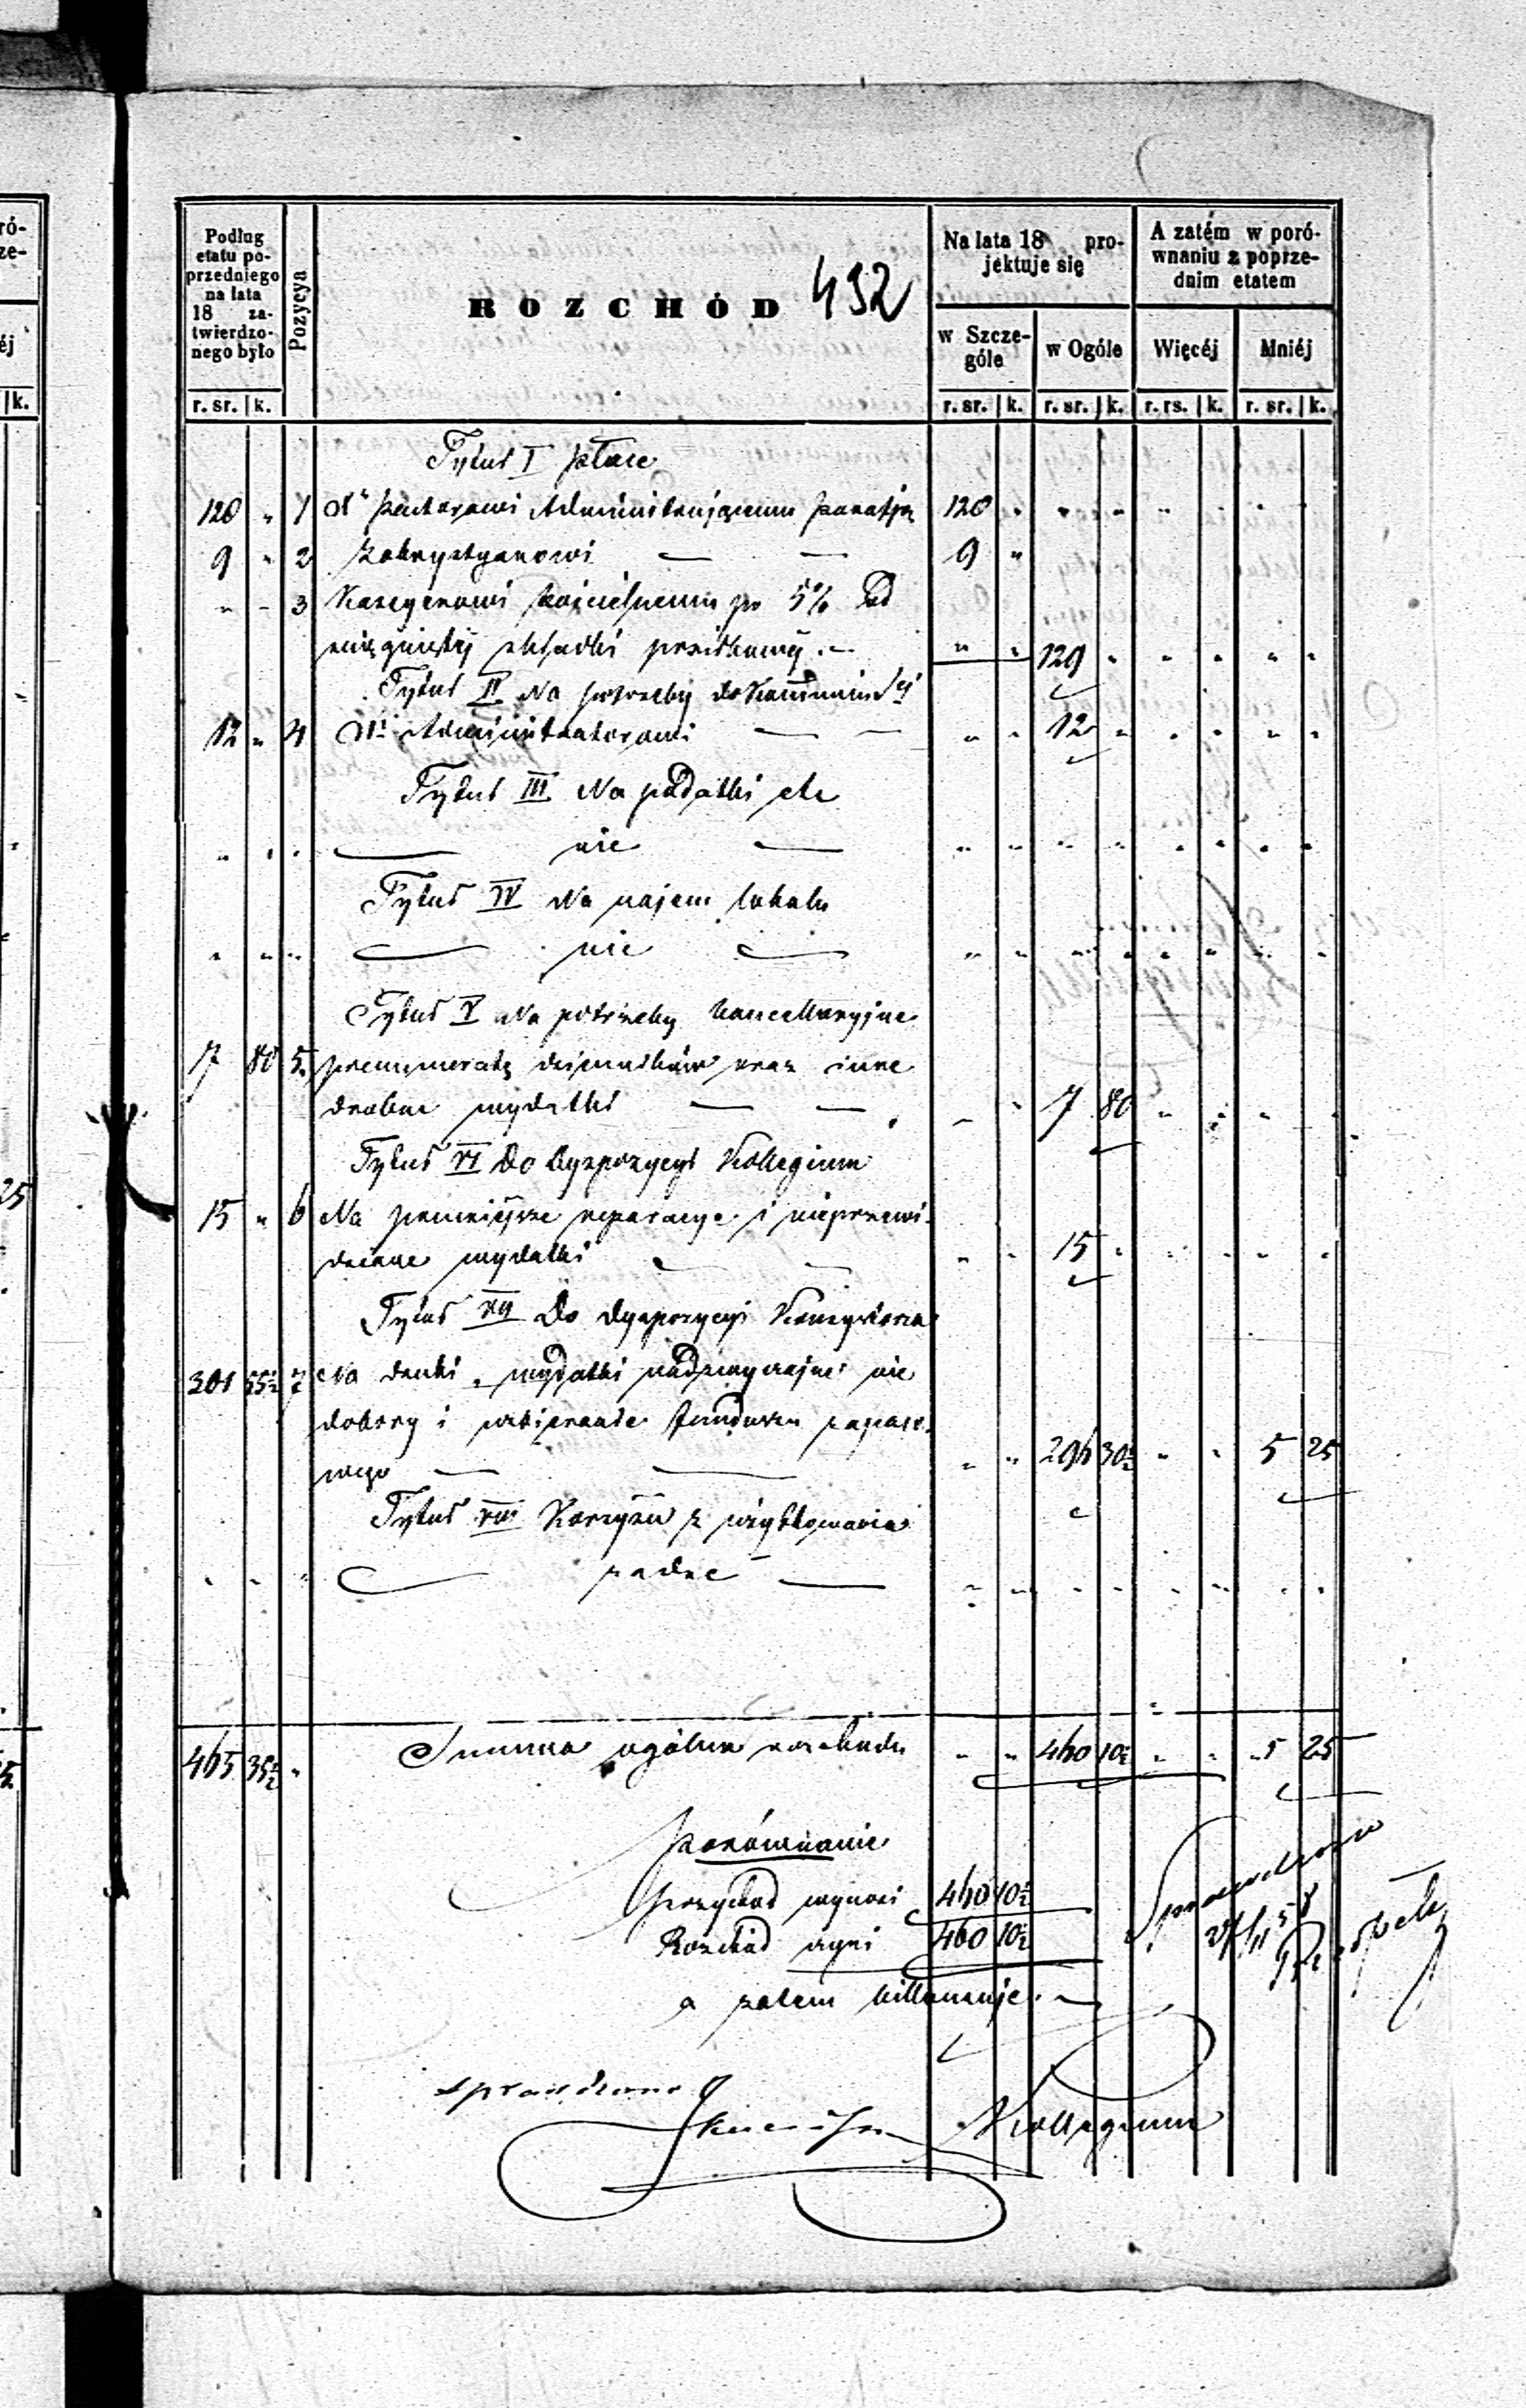 ró-
ze-
éj
k.
25
Podług etatu poprzedniego na lata 18 zatwierdzonego było
Pozycya
ROZCHÓD 492
Na lata 18 projektuje się
A zatém w porównaniu z poprzednim etatem
w Szczególe
w Ogóle
Więcéj
Mniéj
r. sr. k.
r. sr. k. r. sr. k. r. rs. k. r. sr. k.
Tytuł I płace
120 " 1 Xu Pastorowi Administrującemu Parafją 120 "
9 " 2 Zakrystyanowi — — 9 "
" " 3 Kassyerowi kościelnemu po 5% od
ściągniętej składki posiłkowej " " 129 "
Tytuł II Na potrzeby do Kommunii Sej
12 " 4 Xi Administratorowi — — " " 12 "
Tytuł III Na podatki etc
— nic —
Tytuł IV Na najem lokalu
— nic —
Tytuł V Na potrzeby kancellaryjne
7 80 5. prenumeratę dzienników oraz inne
drobne wydatki — — 7 80
Tytuł VI Do dyspozycyi Kollegium
15 " 6 Na pomniejsze reparacye i nieprzewi-
dziane wydatki 15 "
Tytuł VII Do dyspozycyi Konsystorza
301 55½ 7 Na druki, wydatki nadzwyczajne nie
dobory i uzbieranie funduszu zapaso-
wego — — " " 296 30½ " " 5 25
Tytuł VIII Korzyści z użytkowania
żadne —
465 35½ " Summa ogólna rozchodu " " 460 10½ " " 5 25
Porównanie
Przychód wynosi 460 10½
Rozchód czyni 460 10½
a zatem billansuje. —
Sprawdzono
Sprawdzono
Kollegium